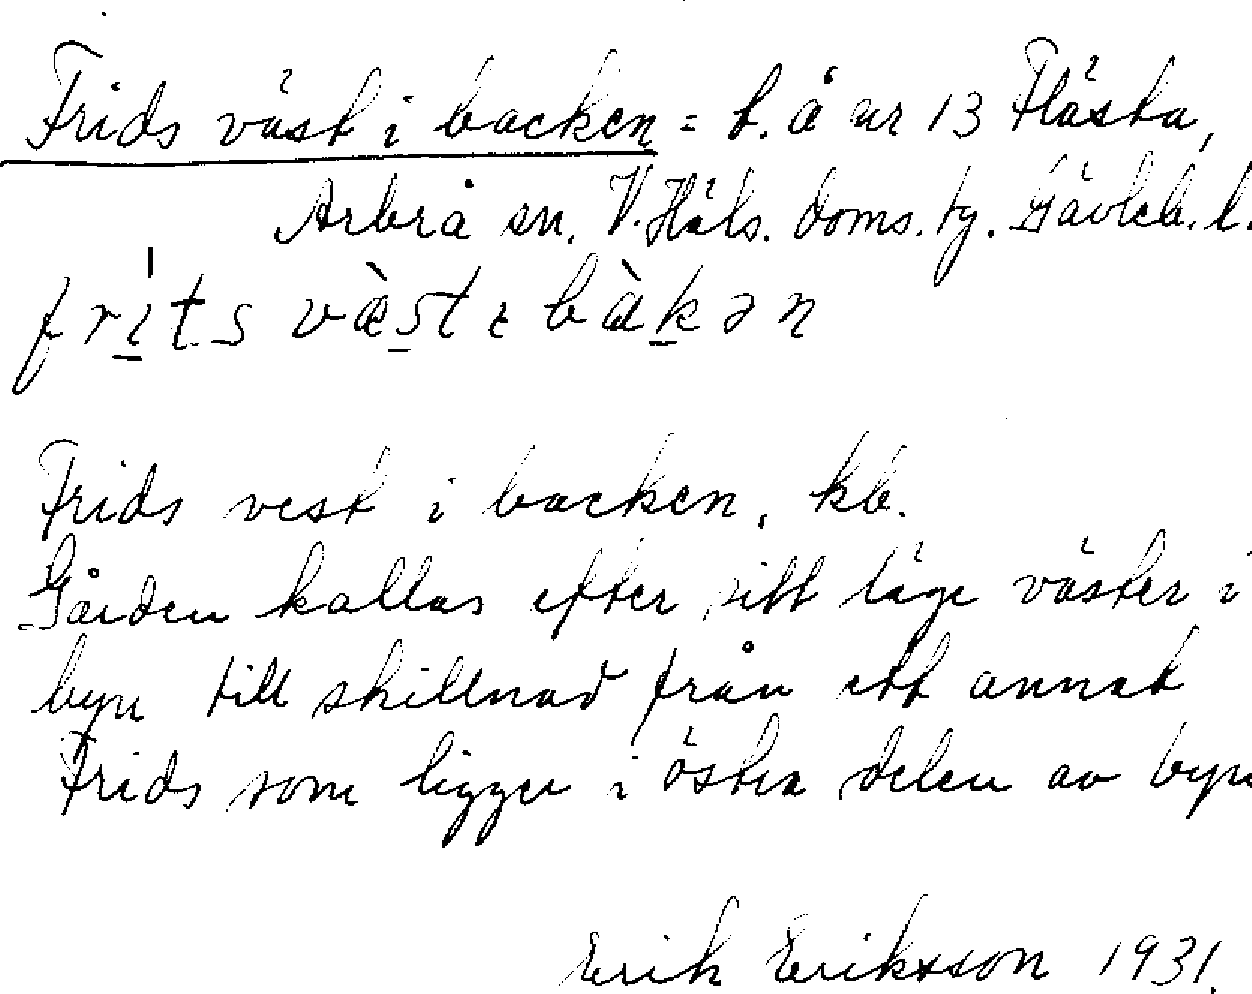 Frids väst i backen = t. å nr 13 Flästa,
Arbrå sn. V. Häls. doms. tg. Gävleb. l.
frits væst ɩ bakən
Frids vest i backen, kb.
Gården kallas efter sitt läge väster i
byn till skillnad från ett annat
Frids som ligger i östra delen av byn
Erik Eriksson 1931.